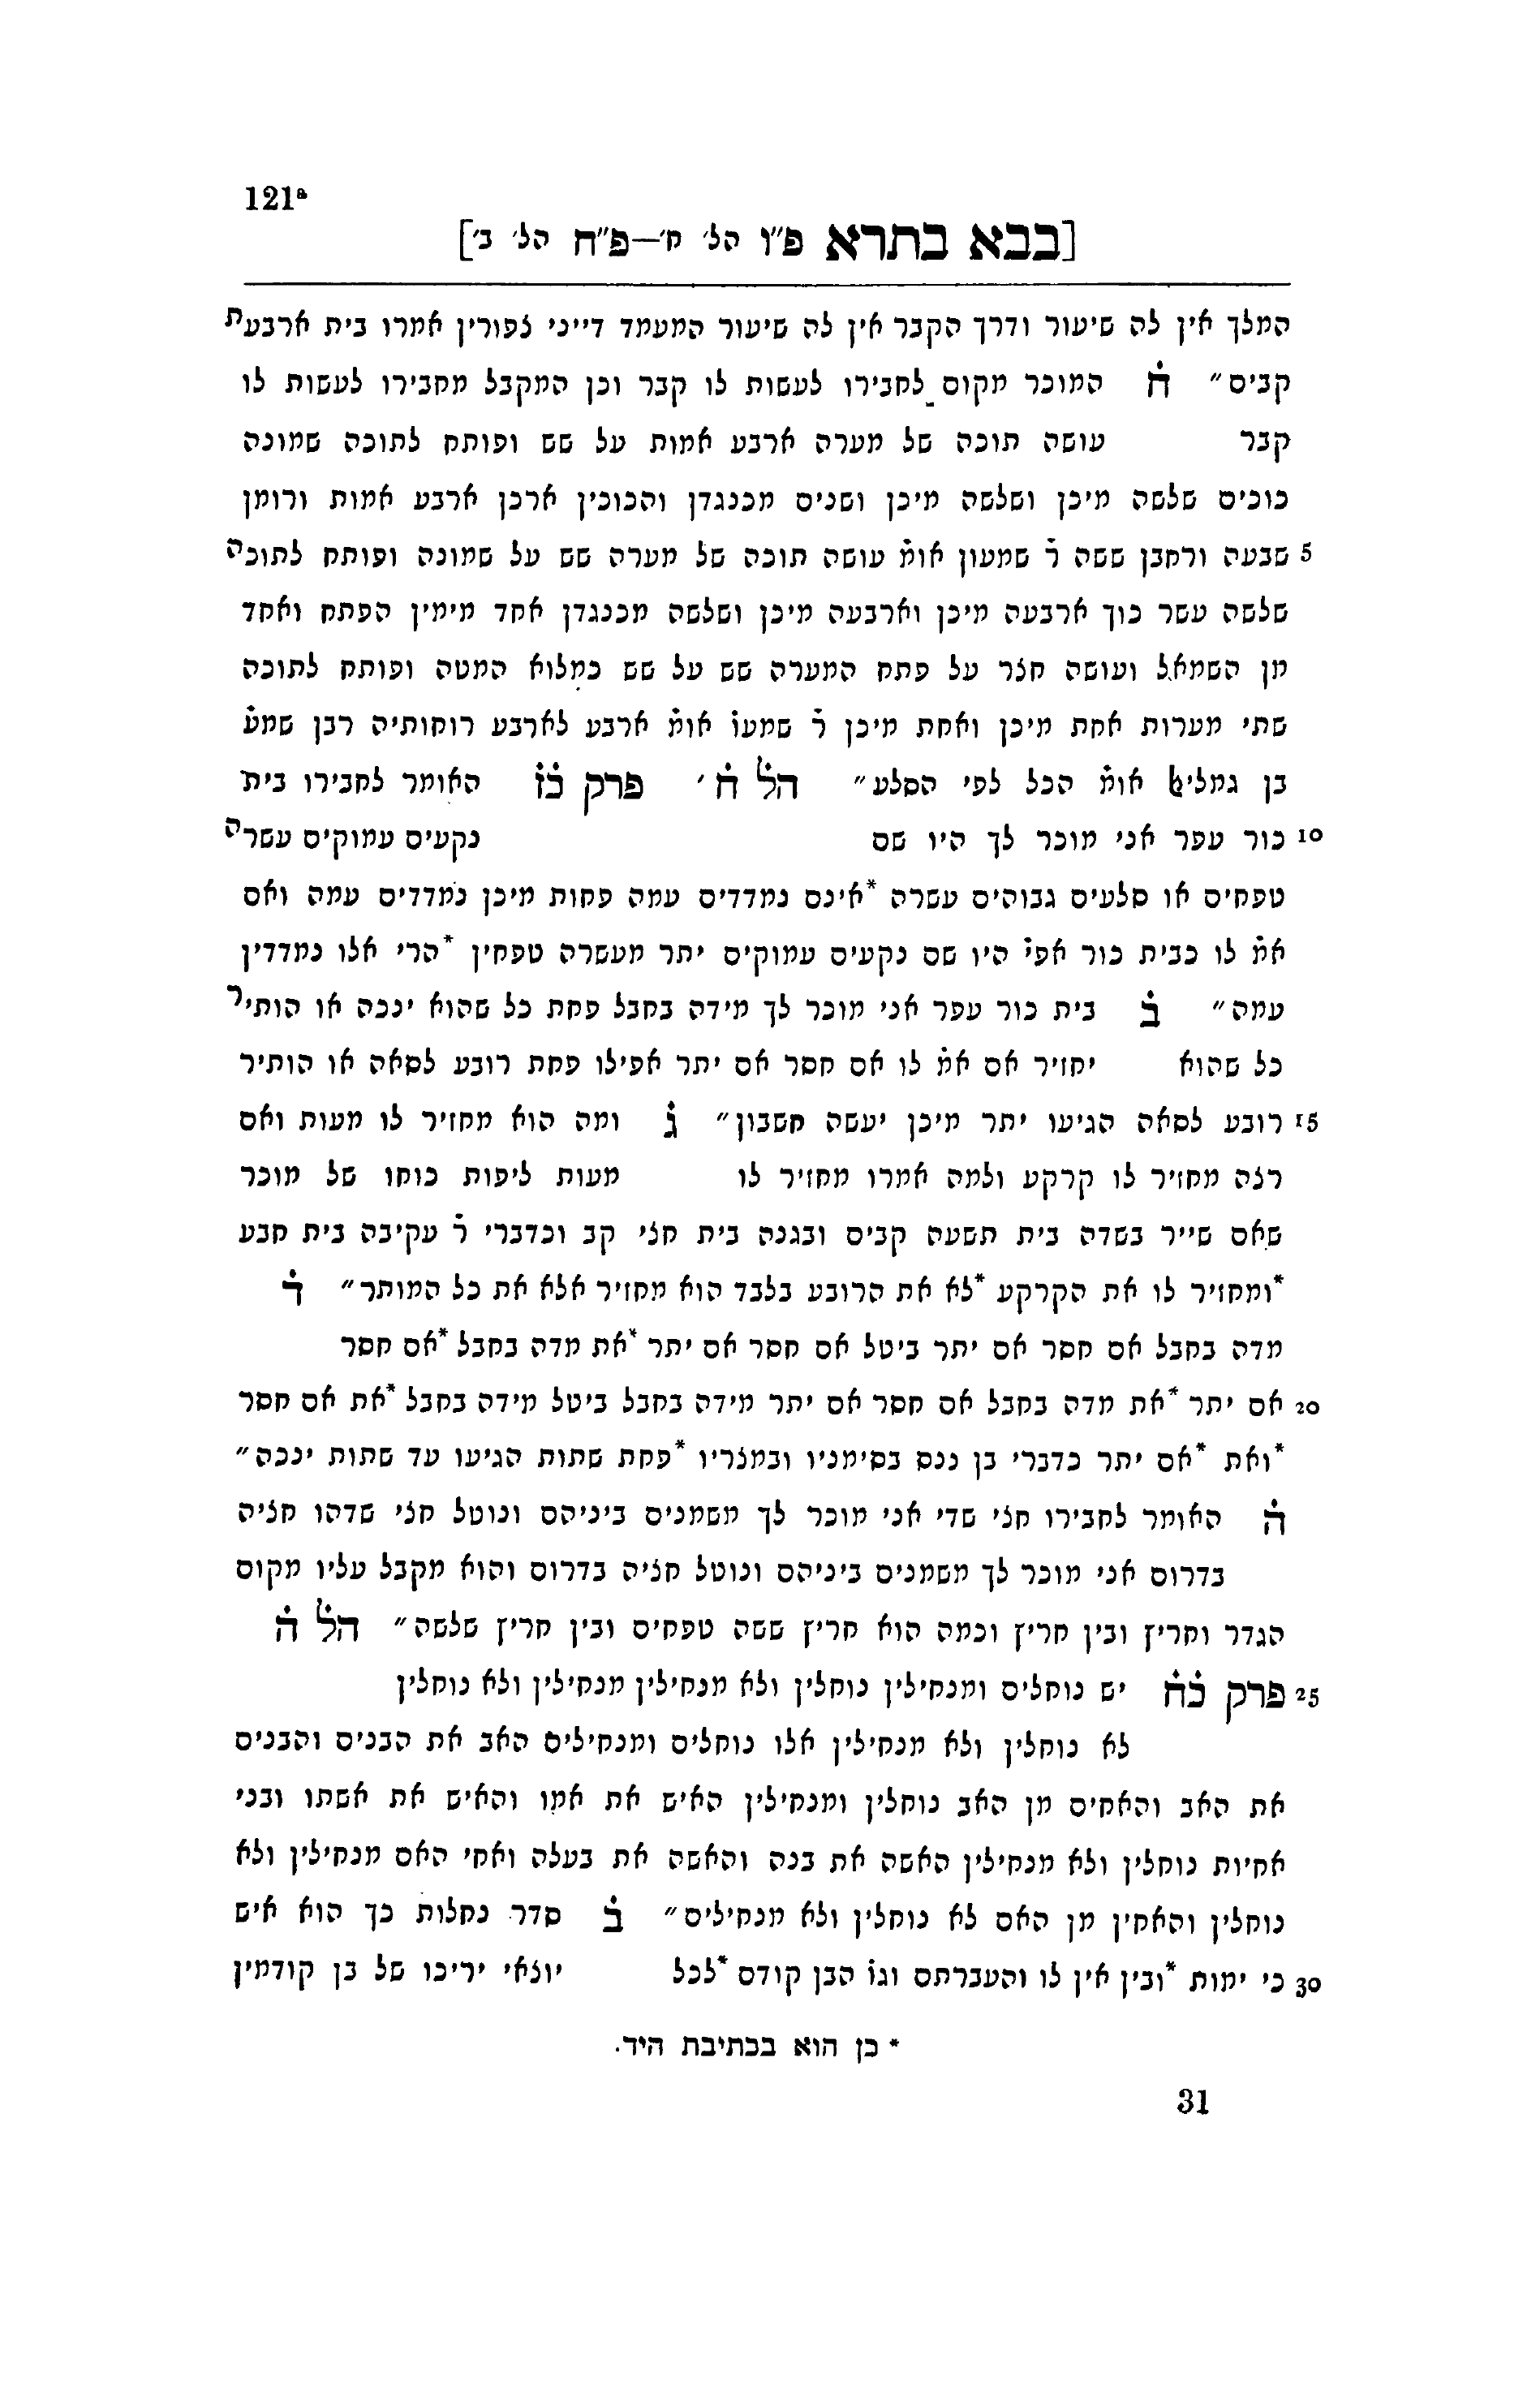 121ª
[בבא בתרא פ"ו הל' ח'—פ"ח הל' ב']
המלך אין לה שיעור ודרך הקבר אין לה שיעור המעמד דייני צפורין אמרו בית ארבעת
קבים״ ח̇ המוכר מקום לחבירו לעשות לו קבר וכן המקבל מחבירו לעשות לו
קבר עושה תוכה של מערה ארבע אמות על שש ופותח לתוכה שמונה
כוכים שלשה מיכן ושלשה מיכן ושנים מכנגדן והכוכין ארכן ארבע אמות ורומן
5 שבעה ורחבן ששה ר̇ שמעון אומ̇ עושה תוכה של מערה שש על שמונה ופותח לתוכה
שלשה עשר כוך ארבעה מיכן וארבעה מיכן ושלשה מכנגדן אחד מימין הפתח ואחד
מן השמאל ועושה חצר על פתח המערה שש על שש כמלוא המטה ופותח לתוכה
שתי מערות אחת מיכן ואחת מיכן ר̇ שמעו̇ אומ̇ ארבע לארבע רוחותיה רבן שמע̇
בן גמליאל אומ̇ הכל לפי הסלע״ הל̇ ח̇ ׳ פרק כ̇ז̇ האומר לחבירו בית
10 כור עפר אני מוכר לך היו שם נקעים עמוקים עשרה
טפחים או סלעים גבוהים עשרה *אינם נמדדים עמה פחות מיכן נמדדים עמה ואם
אמ̇ לו כבית כור אפי̇ היו שם נקעים עמוקים יתר מעשרה טפחין *הרי אלו נמדדין
עמה״ ב̇ בית כור עפר אני מוכר לך מידה בחבל פחת כל שהוא ינכה או הותיר
כל שהוא יחזיר אם אמ̇ לו אם חסר אם יתר אפילו פחת רובע לסאה או הותיר
15 רובע לסאה הגיעו יתר מיכן יעשה חשבון״ ג̇ ומה הוא מחזיר לו מעות ואם
רצה מחזיר לו קרקע ולמה אמרו מחזיר לו מעות ליפות כוחו של מוכר
שאם שייר בשדה בית תשעה קבים ובגנה בית חצי קב וכדברי ר̇ עקיבה בית חבע
*ומחזיר לו את הקרקע *לא את הרובע בלבד הוא מחזיר אלא את כל המותר״ ד̇
מדה בחבל אם חסר אם יתר ביטל אם חסר אם יתר *את מדה בחבל *אם חסר
20 אם יתר *את מדה בחבל אם חסר אם יתר מידה בחבל ביטל מידה בחבל *את אם חסר
*ואת *אם יתר כדברי בן ננס בסימניו ובמצריו *פחת שתות הגיעו עד שתות ינכה״
ה̇ האומר לחבירו חצי שדי אני מוכר לך משמנים ביניהם ונוטל חצי שדהו חציה
בדרום אני מוכר לך משמנים ביניהם ונוטל חציה בדרום והוא מקבל עליו מקום
הגדר וחריץ ובין חריץ וכמה הוא חריץ ששה טפחים ובין חריץ שלשה״ הל̇ ה̇
25 פרק כ̇ח̇ יש נוחלים ומנחילין נוחלין ולא מנחילין מנחילין ולא נוחלין
לא נוחלין ולא מנחילין אלו נוחלים ומנחילים האב את הבנים והבנים
את האב והאחים מן האב נוחלין ומנחילין האיש את אמו והאיש את אשתו ובני
אחיות נוחלין ולא מנחילין האשה את בנה והאשה את בעלה ואחי האם מנחילין ולא
נוחלין והאחין מן האם לא נוחלין ולא מנחילים״ ב̇ סדר נחלות כך הוא איש
30 כי ימות *ובין אין לו והעברתם וגו̇ הבן קודם *לכל יוצאי יריכו של בן קודמין
* כן הוא בכתיבת היד.
31